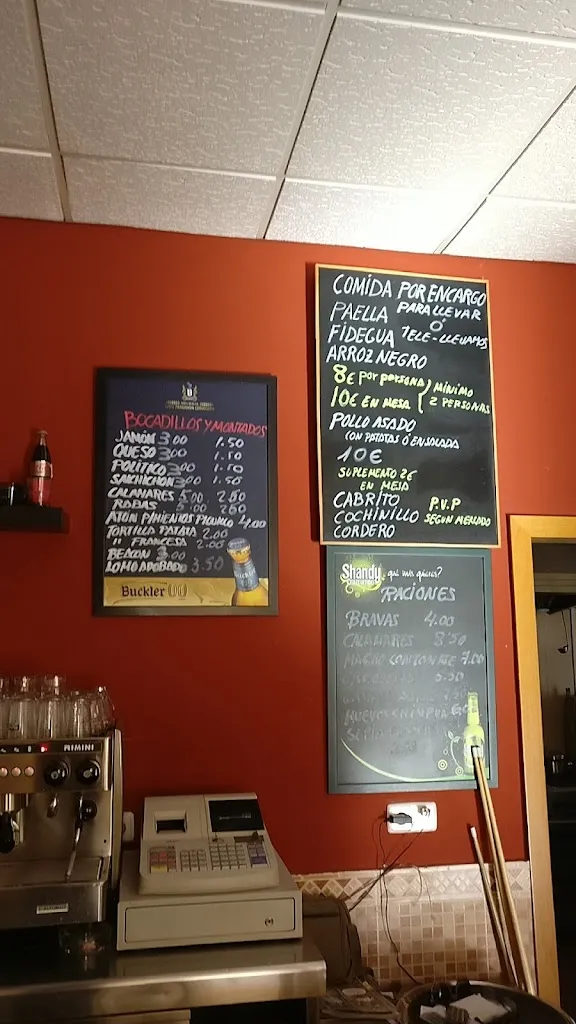 BOCADILLOS Y MONTADOS
JAMÓN 3.00 1.50
QUESO 3.00 1.50
POLÍTICO 3.00 1.50
SALCHICHON 3.00 1.50
CALAMARES 5.00 2.50
RABAS 5.00 2.50
ATÚN PIMIENTOS 4.00
TORTILLA PATATA 2.00
" FRANCESA 2.00
BEACON 3.00
LOMO ADOBADO 3.50
Buckler 00
COMIDA POR ENCARGO
PAELLA PARA LLEVAR
Ó
FIDEGUA TELE-LLEVAMOS
ARROZ NEGRO
8€ por persona } MÍNIMO
10€ EN MESA { 2 PERSONAS
POLLO ASADO
CON PATATAS Ó ENSALADA
10€
SUPLEMENTO 2€
EN MESA
CABRITO P.V.P
COCHINILLO SEGUN MERCADO
CORDERO
Shandy ¿qué más quieres?
RACIONES
BRAVAS 4.00
CALAMARES 8.50
MAGRO CON TOMATE 7.00
RIMINI